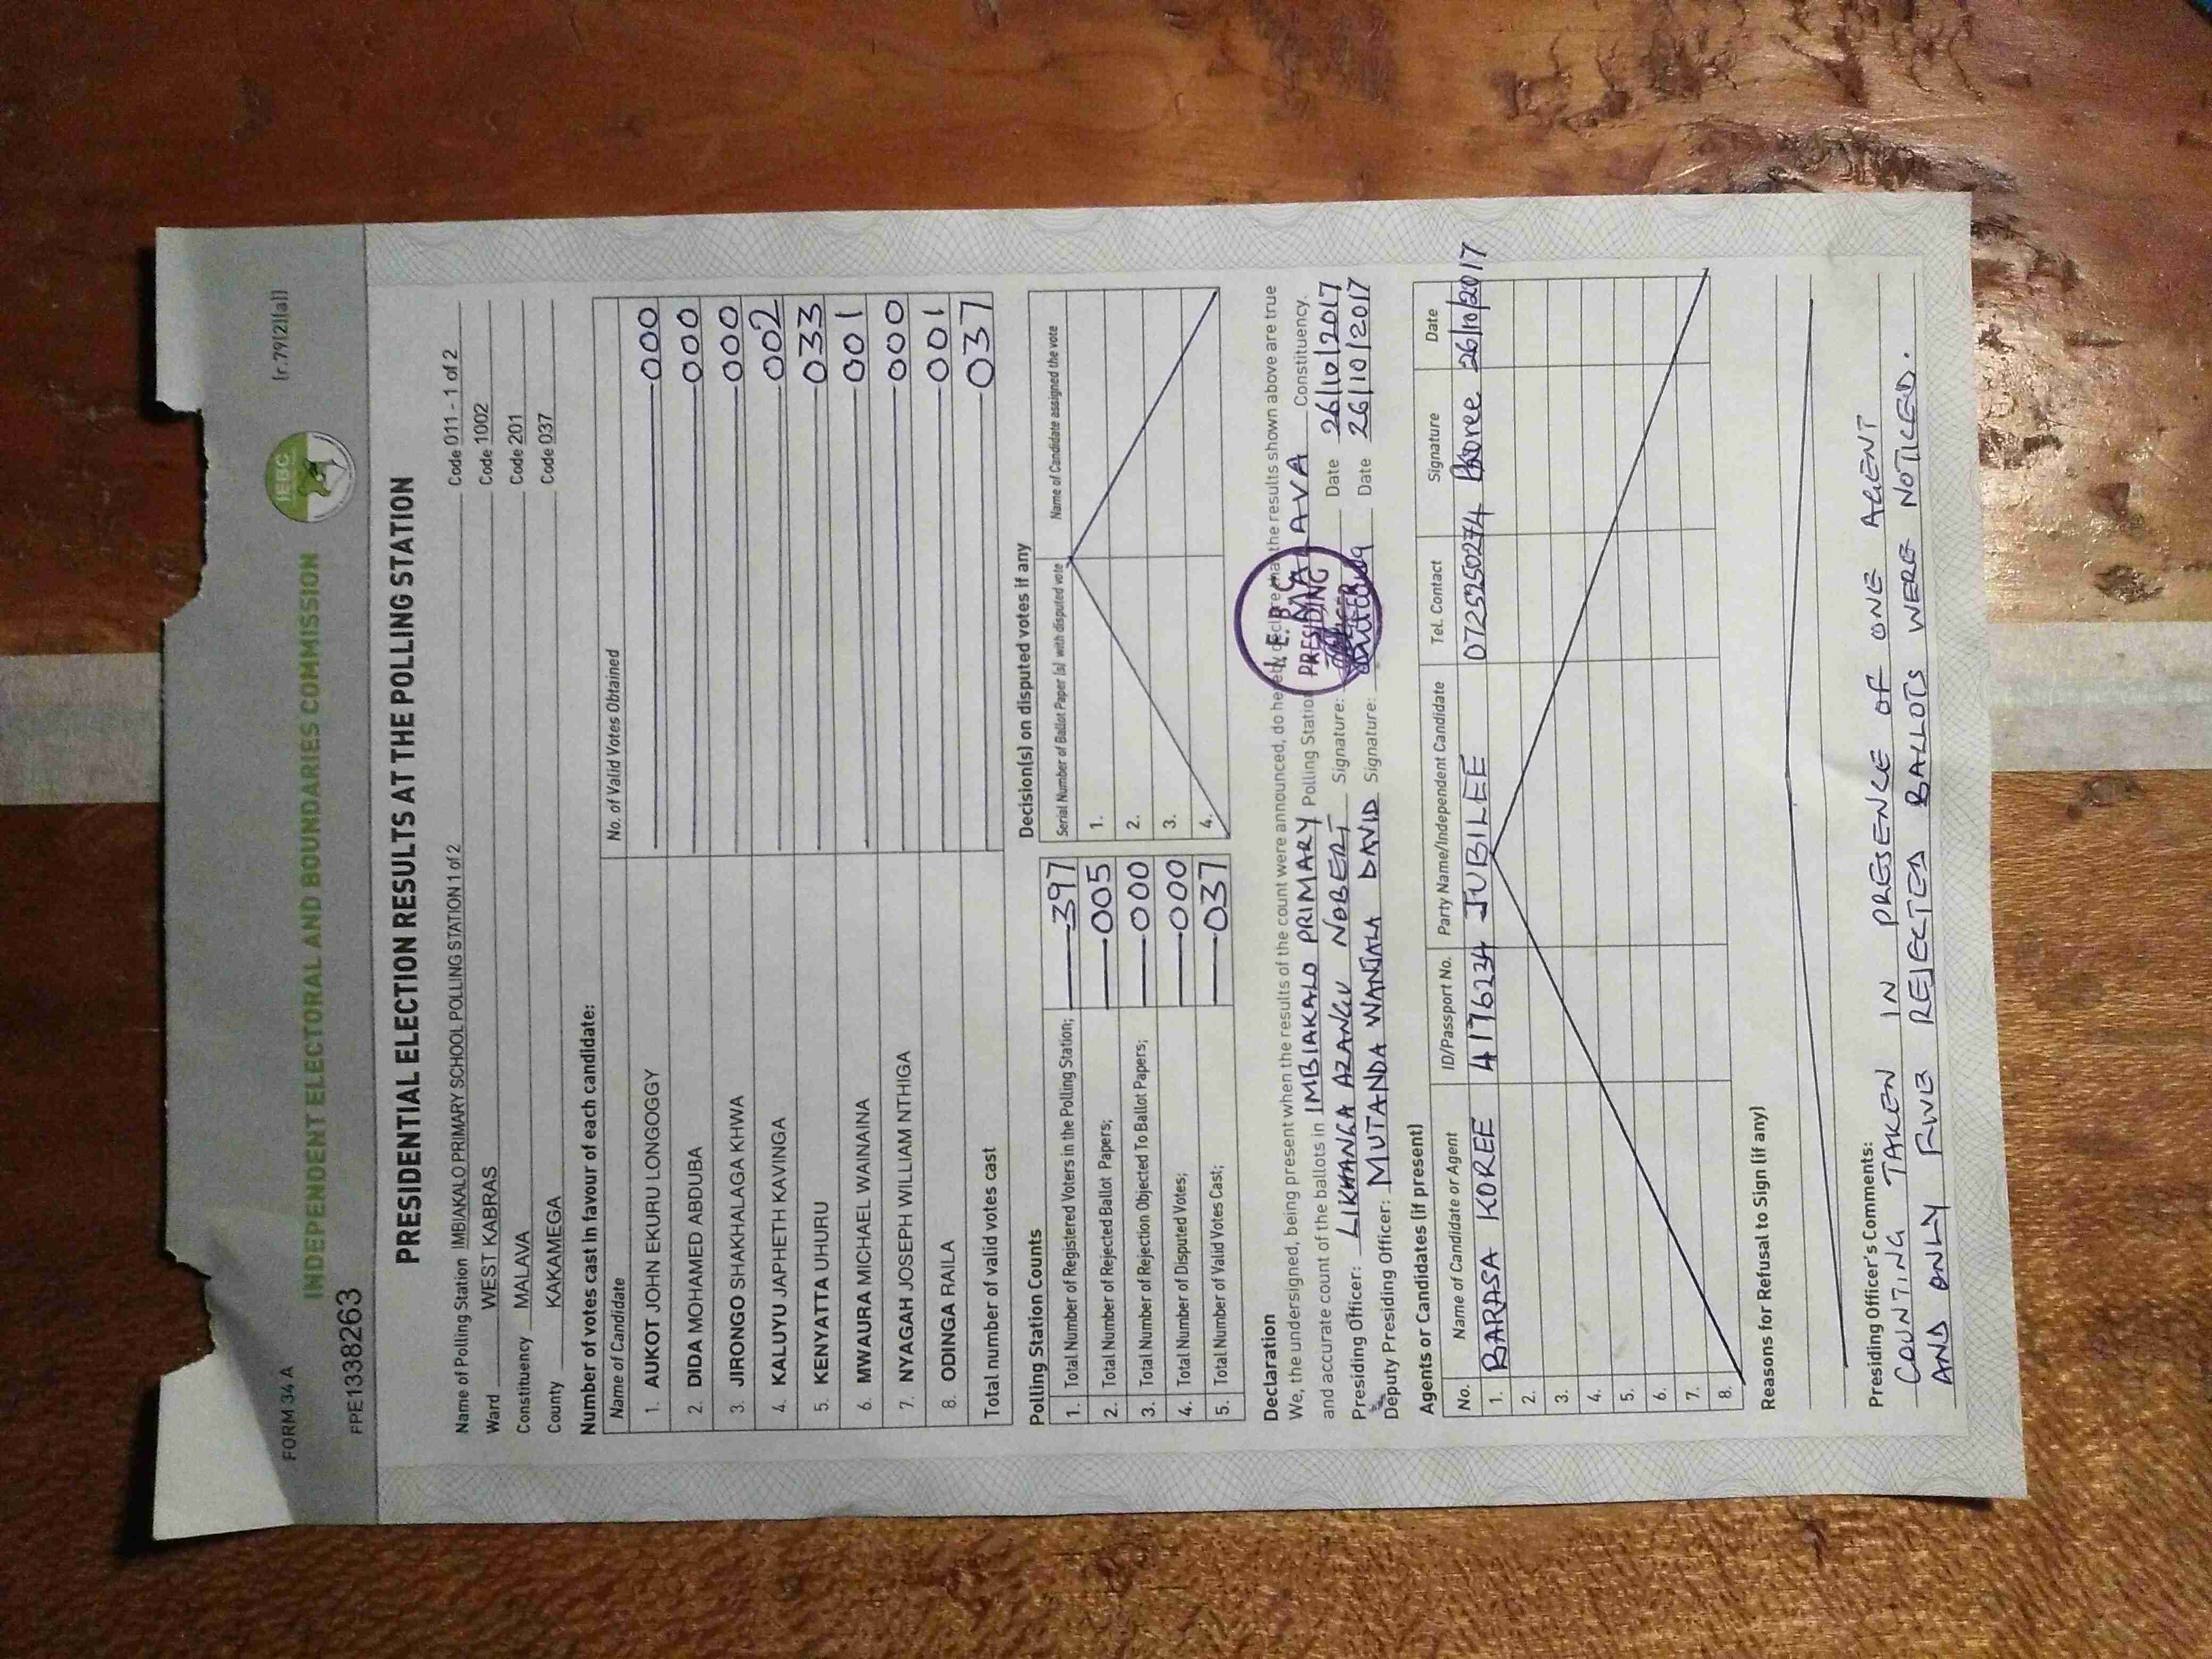 FORM 34 A
[r.79(2)(a)]
INDEPENDENT ELECTORAL AND BOUNDARIES COMMISSION
IEBC
PPE1338263
PRESIDENTIAL ELECTION RESULTS AT THE POLLING STATION
Name of Polling Station IMBIAKALO PRIMARY SCHOOL POLLING STATION 1 of 2 Code 011 - 1 of 2
Ward WEST KABRAS Code 1002
Constituency MALAVA Code 201
County KAKAMEGA Code 037
Number of votes cast in favour of each candidate:
Name of Candidate No. of Valid Votes Obtained
1. AUKOT JOHN EKURU LONGOGGY 000
2. DIDA MOHAMED ABDUBA 000
3. JIRONGO SHAKHALAGA KHWA 000
4. KALUYU JAPHETH KAVINGA 002
5. KENYATTA UHURU 033
6. MWAURA MICHAEL WAINAINA 001
7. NYAGAH JOSEPH WILLIAM NTHIGA 000
8. ODINGA RAILA 001
Total number of valid votes cast 037
Polling Station Counts
1. Total Number of Registered Voters in the Polling Station; 397
2. Total Number of Rejected Ballot Papers; 005
3. Total Number of Rejection Objected To Ballot Papers; 000
4. Total Number of Disputed Votes; 000
5. Total Number of Valid Votes Cast; 037
Decision(s) on disputed votes if any
Serial Number of Ballot Paper (s) with disputed vote Name of Candidate assigned the vote
1.
2.
3.
4.
Declaration
We, the undersigned, being present when the results of the count were announced, do hereby declare that the results shown above are true
and accurate count of the ballots in IMBIAKALO PRIMARY Polling Station MALAVA Constituency.
Presiding Officer: LIKHANGA AZANGU NOBERT Signature: Date 26/10/2017
Deputy Presiding Officer: MUTANDA WANJALA DAVID Signature: Date 26/10/2017
I.E.B.C
PRESIDING
OFFICER
Agents or Candidates (if present)
No. Name of Candidate or Agent ID/Passport No. Party Name/Independent Candidate Tel. Contact Signature Date
1. BARASA KOREE 4176234 JUBILEE 0725250274 Koree 26/10/2017
2.
3.
4.
5.
6.
7.
8.
Reasons for Refusal to Sign (if any)
Presiding Officer's Comments:
COUNTING TAKEN IN PRESENCE OF ONE AGENT
AND ONLY FIVE REJECTED BALLOTS WERE NOTICED.